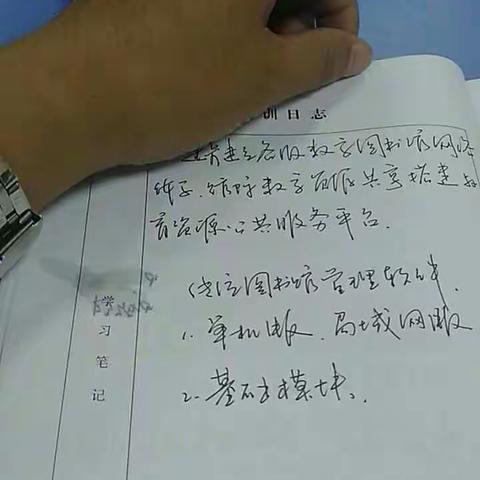 训日志
建立各级数字图书馆网络
体系,保障数字资源共享搭建教
育资源公共服务平台.
图书馆管理软件.
1. 单机版、局域网版
2. 基本模块、.
学习笔记